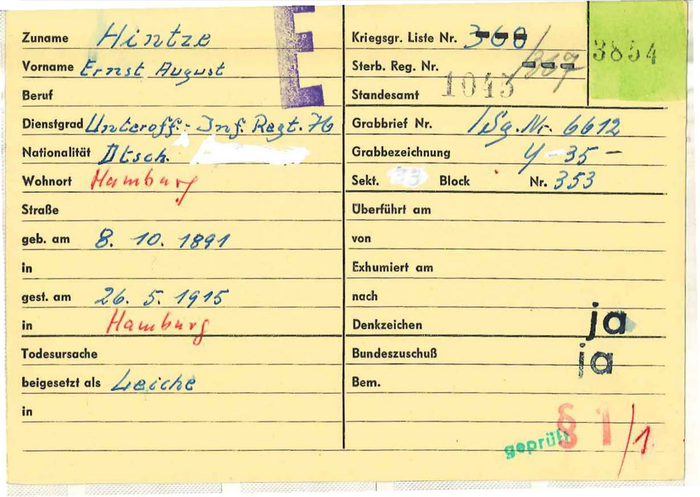 Zuname Hintze
Vorname Ernst August
Beruf
Dienstgrad Unteroff.- Inf. Regt. 76
Nationalität Dtsch.
Wohnort Hamburg
Straße
geb. am 8. 10. 1891
in
gest. am 26. 5. 1915
in Hamburg
Todesursache
beigesetzt als Leiche
in
E
Kriegsgr. Liste Nr.
Sterb. Reg. Nr.
1043
Standesamt
3854
Grabbrief Nr. 6612
Grabbezeichnung Y-35-
Sekt. Block Nr. 353
Überführt am
von
Exhumiert am
nach
Denkzeichen ja
Bundeszuschuß ja
Bem.
geprüft § 1/1.